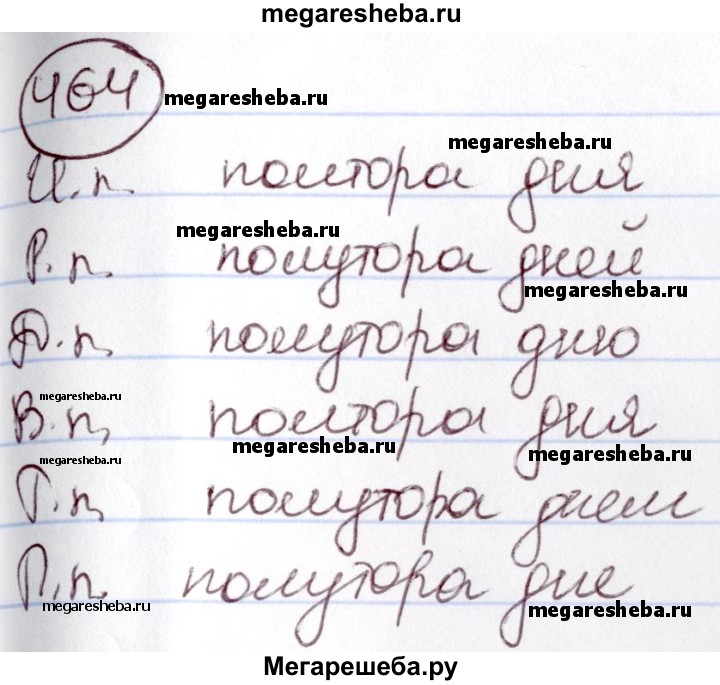 megaresheba.ru
464 megaresheba.ru
megaresheba.ru
И.п. полтора дня
megaresheba.ru
Р.п. полутора дней
megaresheba.ru
Д.п. полутора дню
megaresheba.ru megaresheba.ru
В.п. полтора дня
megaresheba.ru megaresheba.ru
megaresheba.ru
Т.п. полутора днем
П.п. полутора дне
megaresheba.ru megaresheba.ru
Мегарешеба.ру